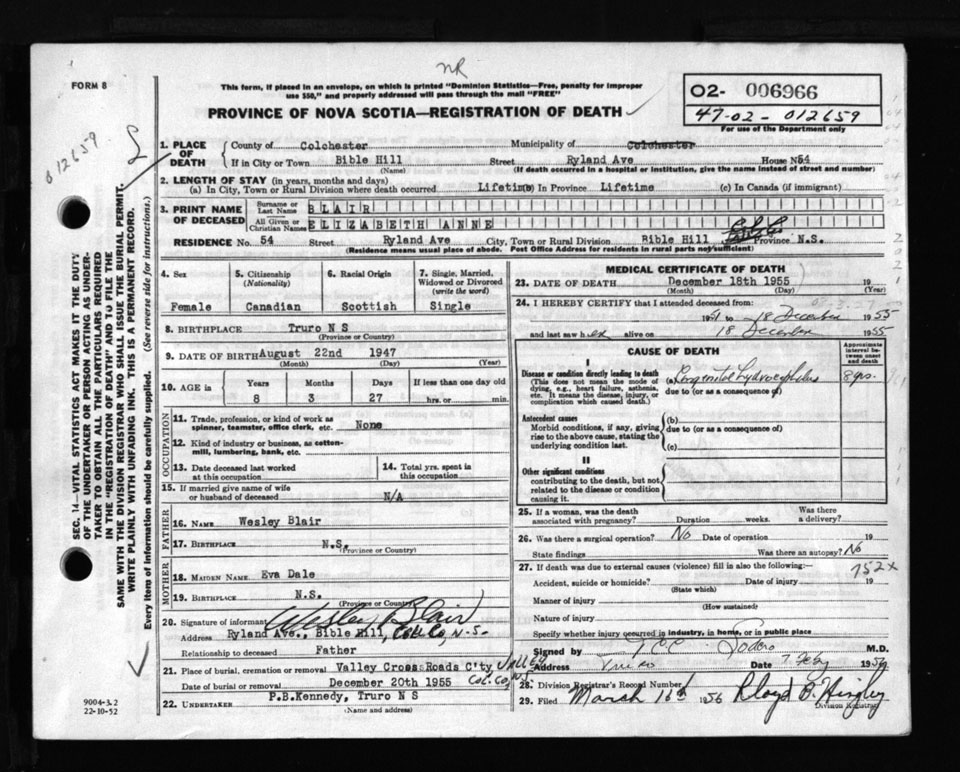 NR
FORM 8
This form, if placed in an envelope, on which is printed "Dominion Statistics—Free, penalty for improper
use $50," and properly addressed will pass through the mail "FREE"
PROVINCE OF NOVA SCOTIA—REGISTRATION OF DEATH
O2- 006966
47-02-012659
For use of the Department only
012659
SEC. 14—VITAL STATISTICS ACT MAKES IT THE DUTY
OF THE UNDERTAKER OR PERSON ACTING AS UNDER-
TAKER TO OBTAIN ALL THE PARTICULARS REQUIRED
IN THE "REGISTRATION OF DEATH" AND TO FILE THE
SAME WITH THE DIVISION REGISTRAR WHO SHALL ISSUE THE BURIAL PERMIT.
WRITE PLAINLY WITH UNFADING INK. THIS IS A PERMANENT RECORD.
Every item of information should be carefully supplied. (See reverse side for instructions.)
1. PLACE OF DEATH
County of Colchester Municipality of Colchester
If in City or Town Bible Hill Street Ryland Ave House N54
(Name) (If death occurred in a hospital or institution, give the name instead of street and number)
2. LENGTH OF STAY (in years, months and days)
(a) In City, Town or Rural Division where death occurred Lifetime (b) In Province Lifetime (c) In Canada (if immigrant)
3. PRINT NAME OF DECEASED
Surname or Last Name BLAIR
All Given or Christian Names ELIZABETH ANNE
RESIDENCE No. 54 Street Ryland Ave City, Town or Rural Division Bible Hill Province N.S.
(Residence means usual place of abode. Post Office Address for residents in rural parts not sufficient)
4. Sex
Female
5. Citizenship (Nationality)
Canadian
6. Racial Origin
Scottish
7. Single, Married, Widowed or Divorced (write the word)
Single
8. BIRTHPLACE Truro N S
(Province or Country)
9. DATE OF BIRTH August 22nd 1947
(Month) (Day) (Year)
10. AGE in Years Months Days If less than one day old
8 3 27 hrs. or min.
OCCUPATION
11. Trade, profession, or kind of work as
spinner, teamster, office clerk, etc. None
12. Kind of industry or business, as cotton-
mill, lumbering, bank, etc.
13. Date deceased last worked
at this occupation
14. Total yrs. spent in
this occupation
15. If married give name of wife
or husband of deceased N/A
FATHER
16. NAME Wesley Blair
17. BIRTHPLACE N.S.
(Province or Country)
MOTHER
18. MAIDEN NAME Eva Dale
19. BIRTHPLACE N.S.
(Province or Country)
20. Signature of informant Wesley Blair
Address Ryland Ave., Bible Hill, Col. Co, N.S.
Relationship to deceased Father
21. Place of burial, cremation or removal Valley Cross Roads C'ty, VALLEY
Date of burial or removal December 20th 1955 Col. Co, NS
22. UNDERTAKER P.B.Kennedy, Truro N S
(Name and address)
9004-3.2
22-10-52
MEDICAL CERTIFICATE OF DEATH
23. DATE OF DEATH December 18th 1955 19
(Month) (Day) (Year)
24. I HEREBY CERTIFY that I attended deceased from
19 to 18 December 1955
and last saw her alive on 18 December 1955
CAUSE OF DEATH
Approximate interval between onset and death
I
Disease or condition directly leading to death
(This does not mean the mode of
dying, e.g., heart failure, asthenia,
etc. It means the disease, injury, or
complication which caused death.)
(a) Congenital hydrocephalus 8 yrs.
due to (or as a consequence of)
Antecedent causes
Morbid conditions, if any, giving
rise to the above cause, stating the
underlying condition last.
(b)
due to (or as a consequence of)
(c)
II
Other significant conditions
contributing to the death, but not
related to the disease or condition
causing it.
25. If a woman, was the death
associated with pregnancy? Duration weeks. Was there a delivery?
26. Was there a surgical operation? No Date of operation 19
State findings Was there an autopsy? No
27. If death was due to external causes (violence) fill in also the following: 752x
Accident, suicide or homicide? Date of injury 19
(State which)
Manner of injury
(How sustained)
Nature of injury
Specify whether injury occurred in industry, in home, or in public place
Signed by M.D.
Address Truro Date 7 Feby 1956
28. Division Registrar's Record Number
29. Filed March 16th 1956 Lloyd B. Hingley
Division Registrar